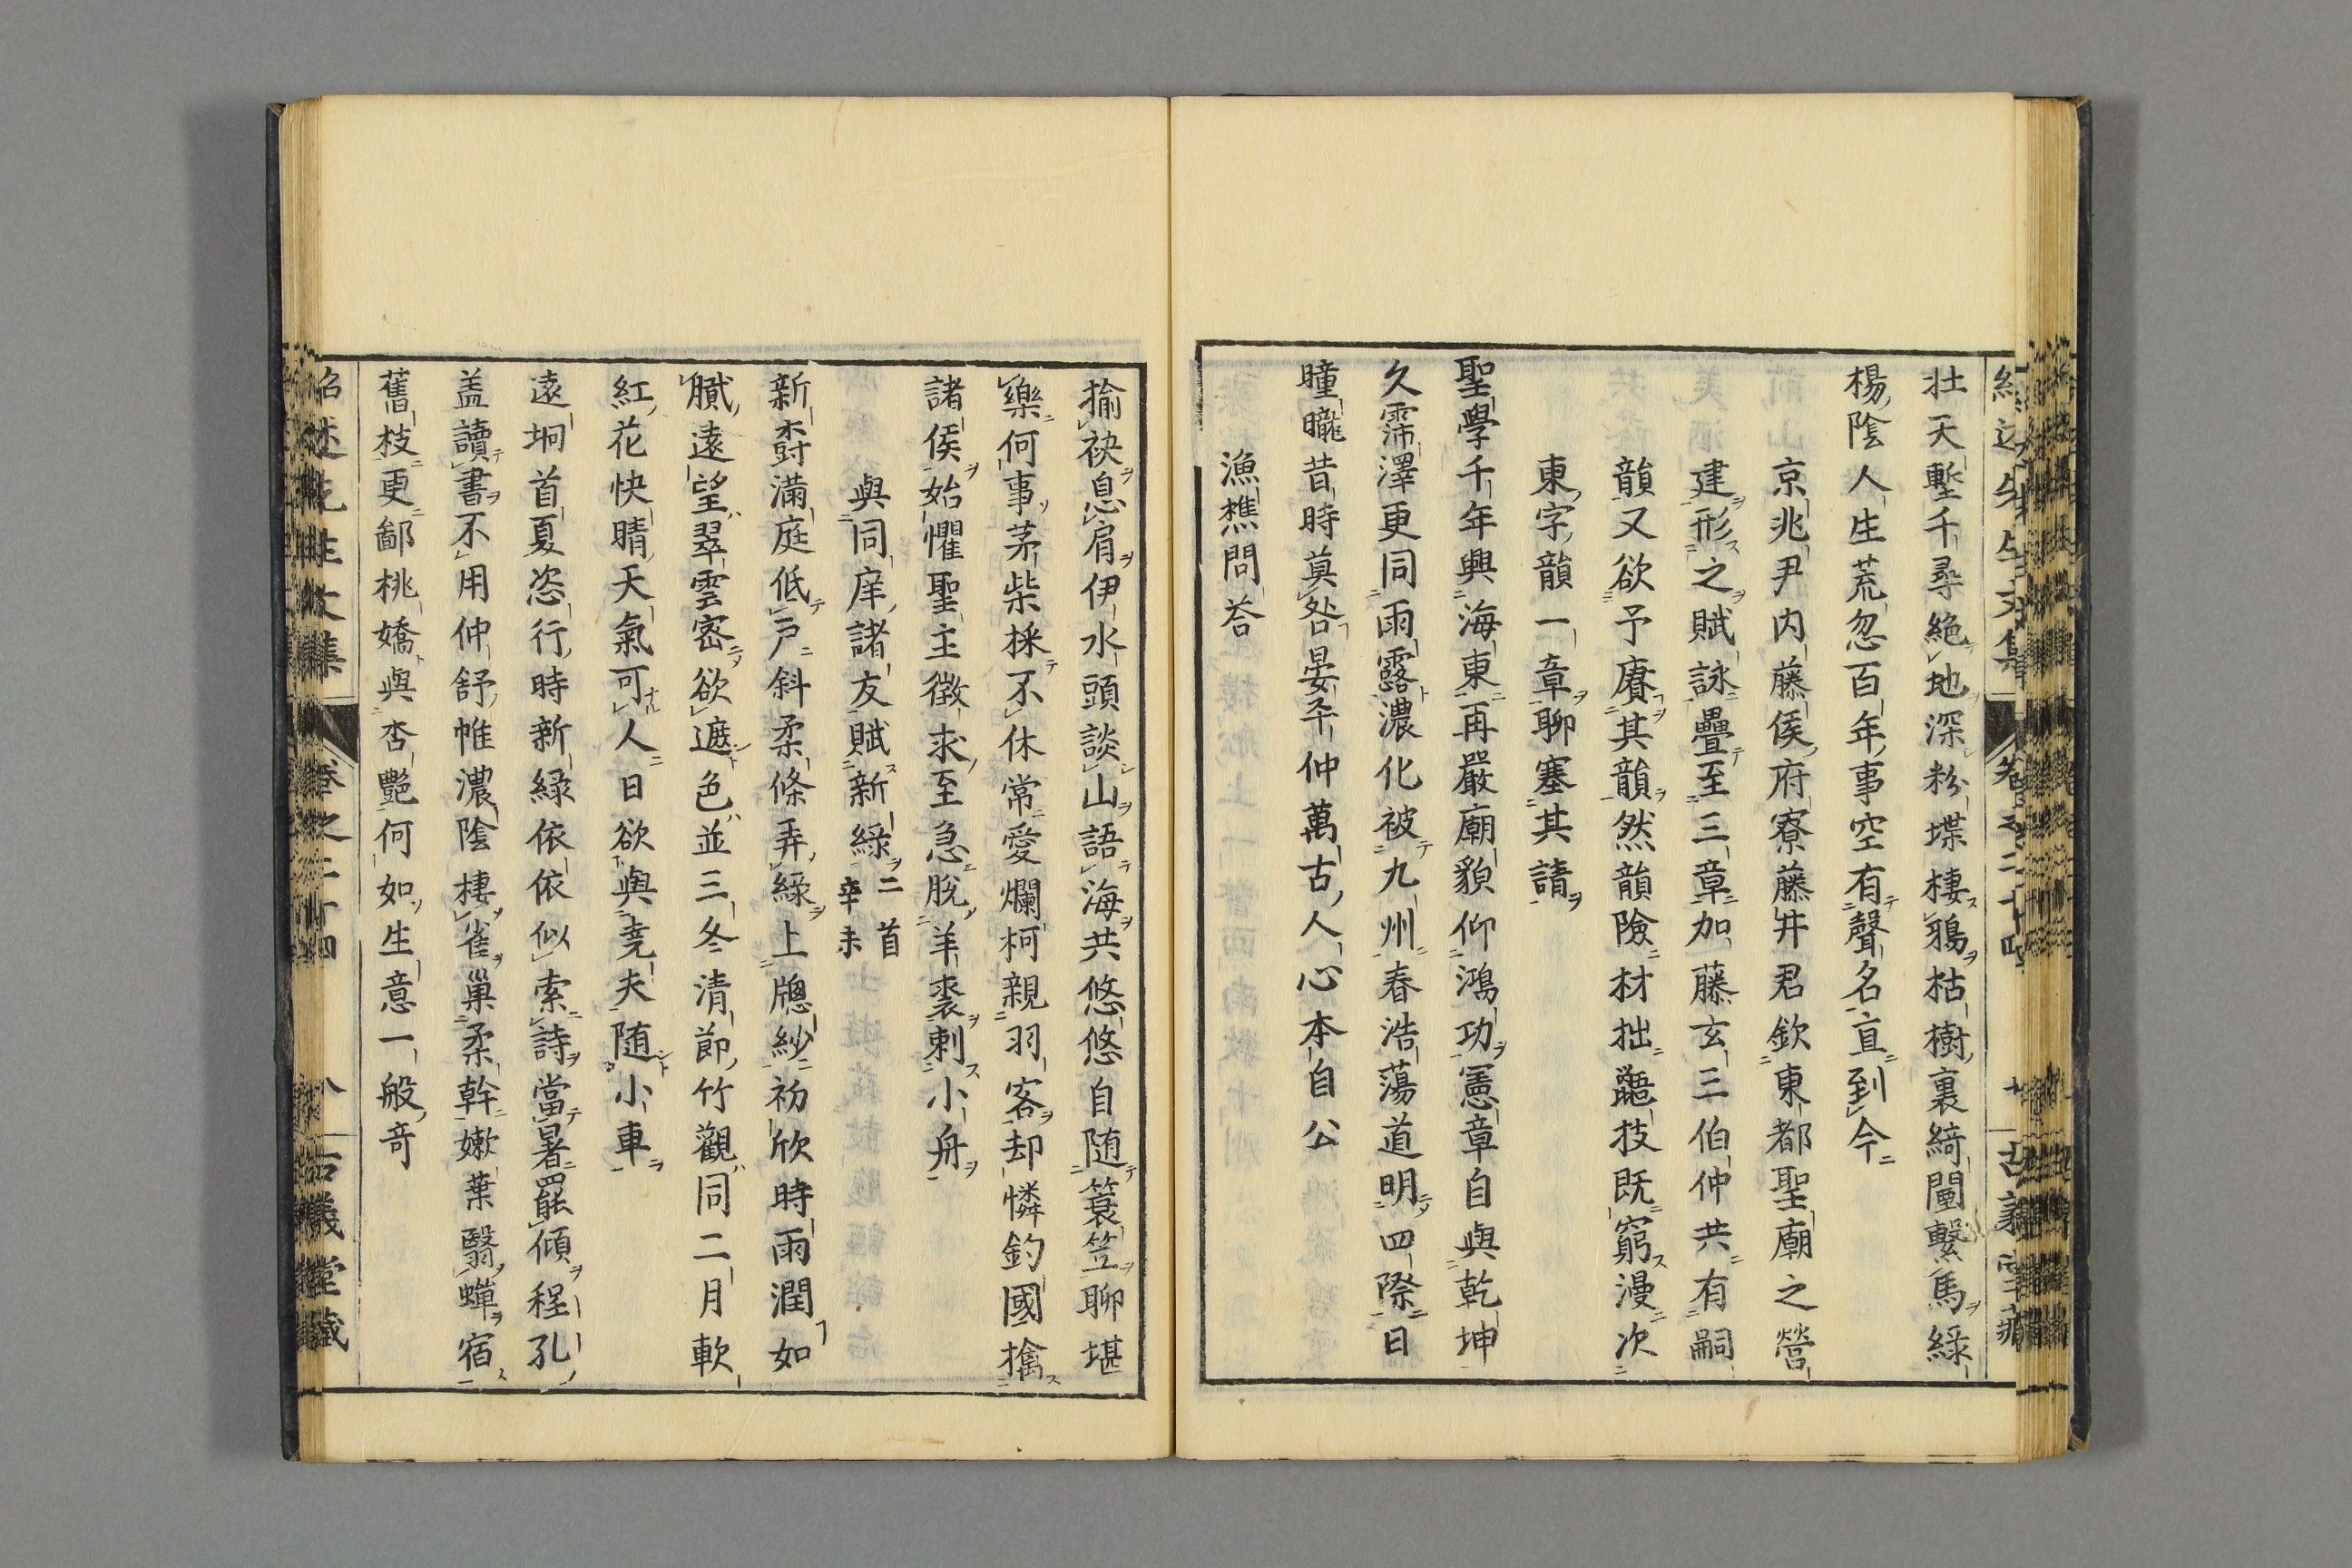 壮天塹千尋絶地深粉堞棲鴉枯樹裏綺闉繫馬綠
楊陰人生荒忽百年事空有聲名亘到今
京兆尹内藤侯府寮藤井君欽東都聖廟之營
建形之賦詠疊至三章加藤玄三伯仲共有嗣
韻又欲予賡其韻然韻險材拙鼯技既窮漫次
東字韻一章聊塞其請
聖學千年興海東再嚴廟貌仰鴻功憲章自與乾坤
久霈澤更同雨露濃化被九州春浩蕩道明四際日
曈曨昔時莫咎晏平仲萬古人心本自公
漁樵問荅
揄袂息肩伊水頭談山語海共悠悠自随簑笠聊堪
樂何事茅柴採不休常愛爛柯親羽客却憐釣國擒
諸侯始懼聖主徵求至急脫羊裘刺小舟
與同庠諸友賦新綠二首
辛未
新樹滿庭低戸斜柔條弄綠上牕紗初欣時雨潤如
膩遠望翠雲密欲遮色並三冬清節竹觀同二月軟
紅花快晴天氣可人日欲與堯夫随小車
遠坰首夏恣行時新緑依依似索詩當暑罷傾程孔
盖讀書不用仲舒帷濃陰棲雀巢柔幹嫩葉翳蟬宿
舊枝更鄙桃嬌與杏艷何如生意一般奇